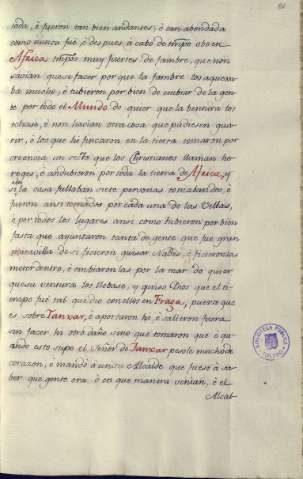 toda, è fueron tan bien andantes, è tan abondada
como nunca fué, è despues, à cabo de tiempo obo en
Africa tiempos muy fuertes de fambre, que non
savian que se facer por que la fambre los aquexa-
ba mucho, è tubieron por bien de embiar de la gen-
te por todo el Mundo do quier que la bentura los
echase, è non havian otra cosa que pudiesen gua-
rir, è los que hi fincaron en la tierra tomaron por
creencia un secta que los Christianos llaman he-
reges, è andubieron por toda la tierra de Africa, y
si en la casa fallaban siete personas tomaban dos, è
fueron ansi tomados por cada una de las Villas,
è por todos los lugares ansi como tubieron por bien
fasta que ayuntaron tanta de gente que fué gran
maravilla de si ficieron guisar Nabios, è
metér dentro, è embiaron las por la mar do quier
que su ventura los llebase, y quiso Dios que el ti-
empo fué tal que dió con ellos en Fraga, puerta que
es sobre Tanxar, è aportaron hi, è salieron fuera
sin facer hi otro daño sino que tomaron que
quando esto supo el Señor de Tanxar pesole mucho de
corazon, è mandó à un su Alcaide que fuese à sa-
ber que gente era, è en que manera venian, è el
Alcai-